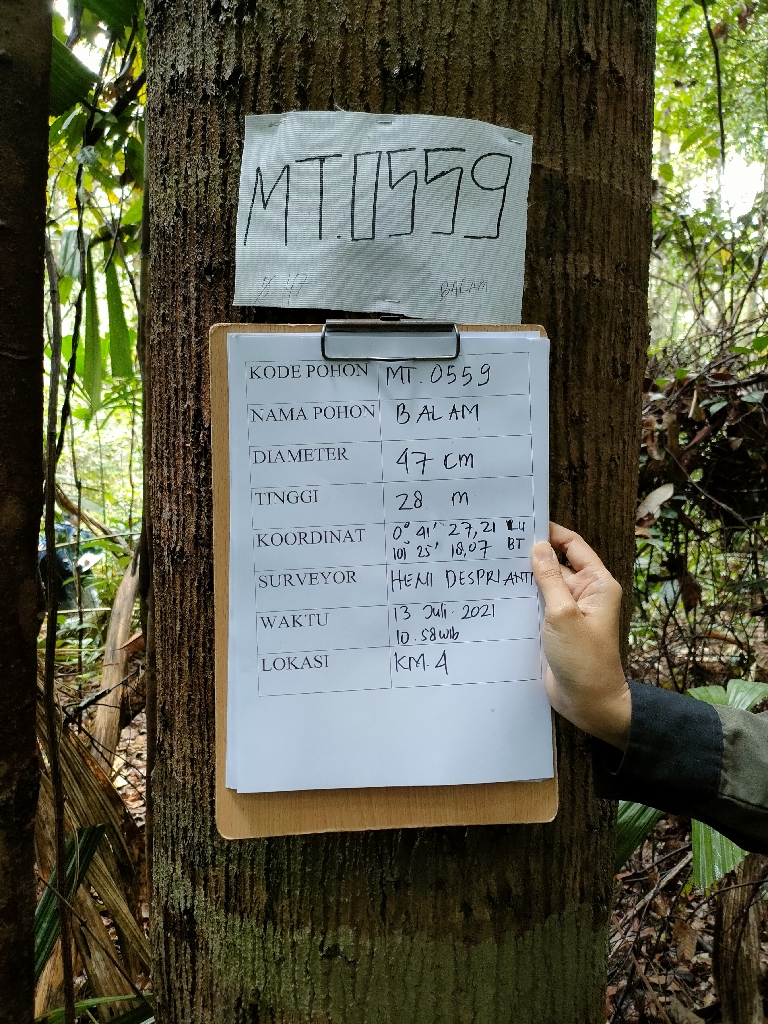 MT.0559
BALAM
KODE POHON MT. 0559
NAMA POHON BALAM
DIAMETER 47 cm
TINGGI 28 m
KOORDINAT 0° 41' 27,21 LU
101° 25' 18,07 BT
SURVEYOR HENI DESPRIANTI
WAKTU 13 Juli 2021
10.58 wib
LOKASI KM.4